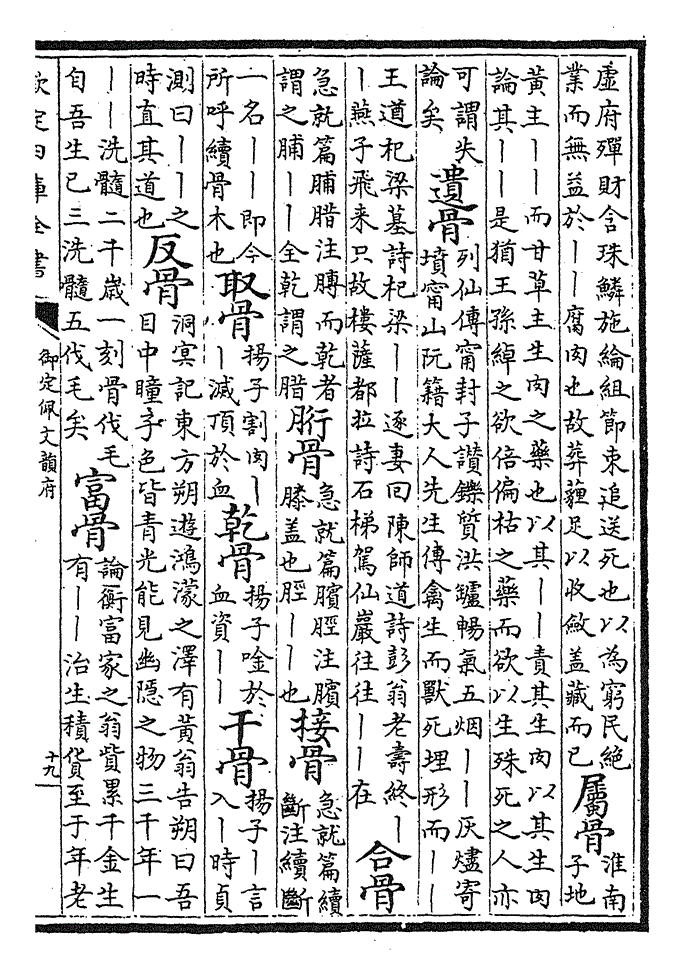 虛府殫財含珠鱗施綸組節束追送死也以為窮民絕
業而無益於丨丨腐肉也故葬薶足以收斂盖藏而已
屬骨
淮南
子地
黃主丨丨而甘草主生肉之藥也以其丨丨責其生肉以其生肉
論其丨丨是猶王孫綽之欲倍偏枯之藥而欲以生殊死之人亦
可謂失
論矣
遺骨
列仙傳甯封子讚鑠質洪鑪暢氣五烟丨丨灰燼寄
墳甯山阮籍大人先生傳禽生而獸死埋形而丨丨
王遒杞梁墓詩杞梁丨丨逐妻回陳師道詩彭翁老壽終丨
丨燕子飛来只故樓薩都拉詩石梯駕仙巖往往丨丨在
合骨
急就篇脯腊注膊而乾者
謂之脯丨丨全乾謂之腊
胻骨
急就篇臏脛注臏
膝盖也脛丨丨也
接骨
急就篇續
斷注續斷
一名丨丨即今
所呼續骨木也
取骨
揚子割肉丨
丨滅頂於血
乾骨
揚子唫於
血資丨丨
干骨
揚子丨言
入丨時貞
測曰丨丨之
時直其道也
反骨
洞冥記東方朔遊鴻濛之澤有黃翁告朔曰吾
目中瞳子色皆青光能見幽隱之物三千年一
丨丨洗髓二千歲一刻骨伐毛
自吾生已三洗髓五伐毛矣
富骨
論衡富家之翁貲累千金生
有丨丨治生積貨至于年老
欽定四庫全書
御定佩文韻府
十九